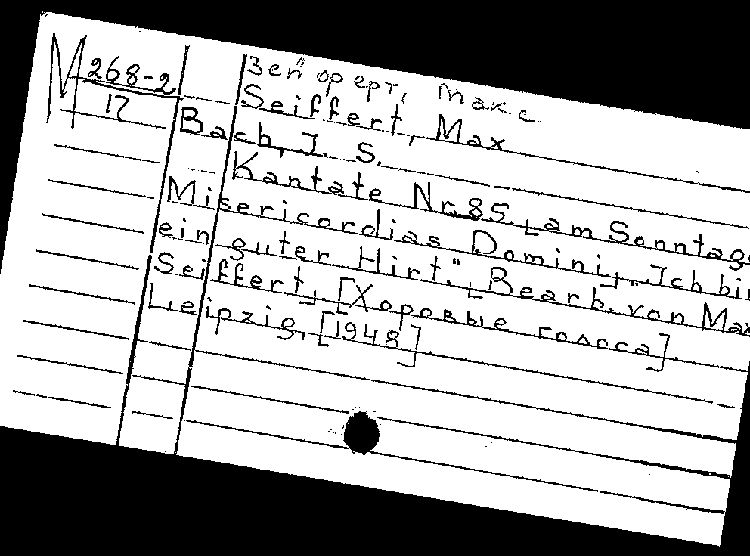 М 268-2
17
Зейферт, Макс
Seiffert, Max
Bach, J. S.
Kantate Nr. 85 [am Sonntag
Misericordias Domini], „Ich bin
ein guter Hirt." [Bearb. von Max
Seiffert] [Хоровые голоса].
Leipzig, [1948]